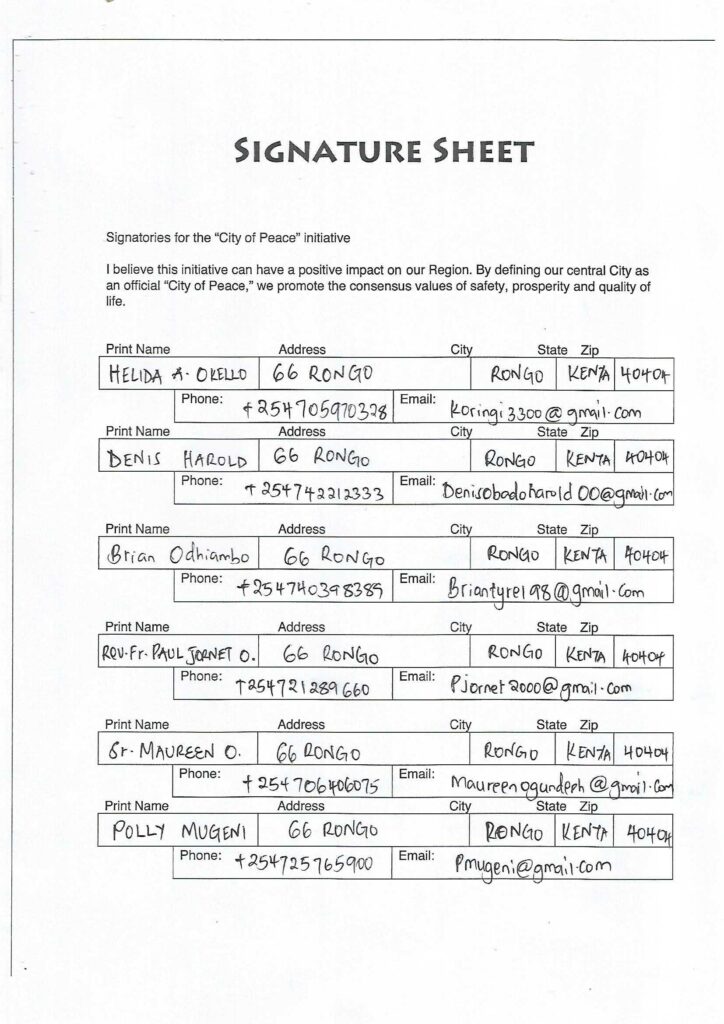 SIGNATURE SHEET
Signatories for the “City of Peace” initiative
I believe this initiative can have a positive impact on our Region. By defining our central City as
an official “City of Peace,” we promote the consensus values of safety, prosperity and quality of
life.
Print Name Address City State Zip
HELIDA A. OKELLO 66 RONGO RONGO KENYA 40404
Phone: +254705970328 Email: Koringi3300@gmail.com
Print Name Address City State Zip
DENIS HAROLD 66 RONGO RONGO KENYA 40404
Phone: +254742212333 Email: Denisobadoharold00@gmail.com
Print Name Address City State Zip
Brian Odhiambo 66 RONGO RONGO KENYA 40404
Phone: +254740398389 Email: Briantyre198@gmail.com
Print Name Address City State Zip
Rev. Fr. PAUL JORNET O. 66 RONGO RONGO KENYA 40404
Phone: +254721289660 Email: Pjornet2000@gmail.com
Print Name Address City State Zip
Sr. MAUREEN O. 66 RONGO RONGO KENYA 40404
Phone: +254706406075 Email:
Print Name Address City State Zip
POLLY MUGENI 66 RONGO RONGO KENYA 40404
Phone: +254725765900 Email: Pmugeni@gmail.com